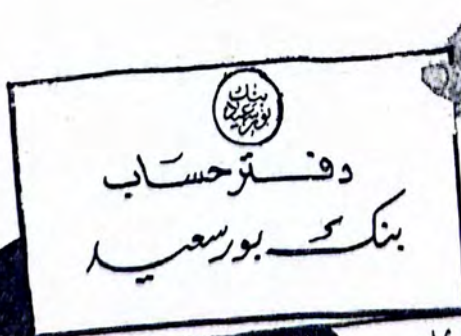 بنك
بورسعيد
دفتر حساب
بنك بورسعيد